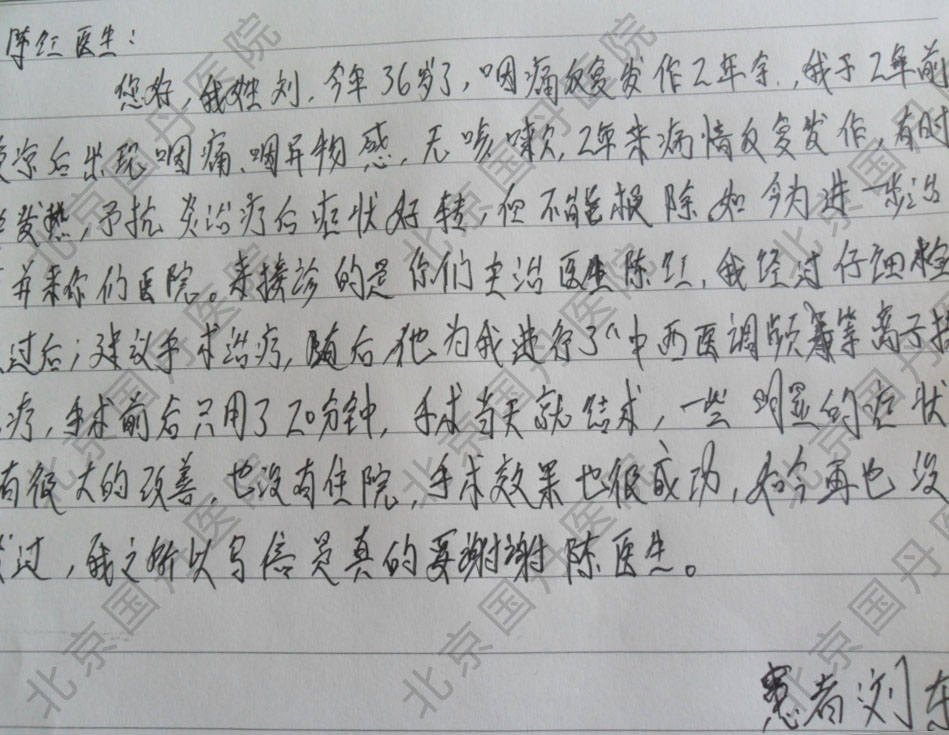 陈红医生：
您好，我姓刘，今年36岁了，咽痛反复发作2年余，我于2年前
凉后出现咽痛、咽异物感，无咳嗽，2年来病情反复发作，有时
发热，予抗炎治疗后症状好转，但不能根除如今为进一步治
并来你们医院。来接诊的是你们主治医生陈红，我经过仔细检
过后；建议手术治疗，随后他为我进行了“中西医调频等离子
疗，手术前后只用了20分钟，手术当天就结束，一些明显的症状
有很大的改善，也没有住院，手术效果也很成功，如今再也没
过，我之所以写信是真的要谢谢陈医生。
患者刘东
北京国丹医院
北京国丹医院
北京国丹医院
北京国丹医院
北京国丹医院
北京国丹医院
北京国丹医院
北京国丹医院
北京国丹医院